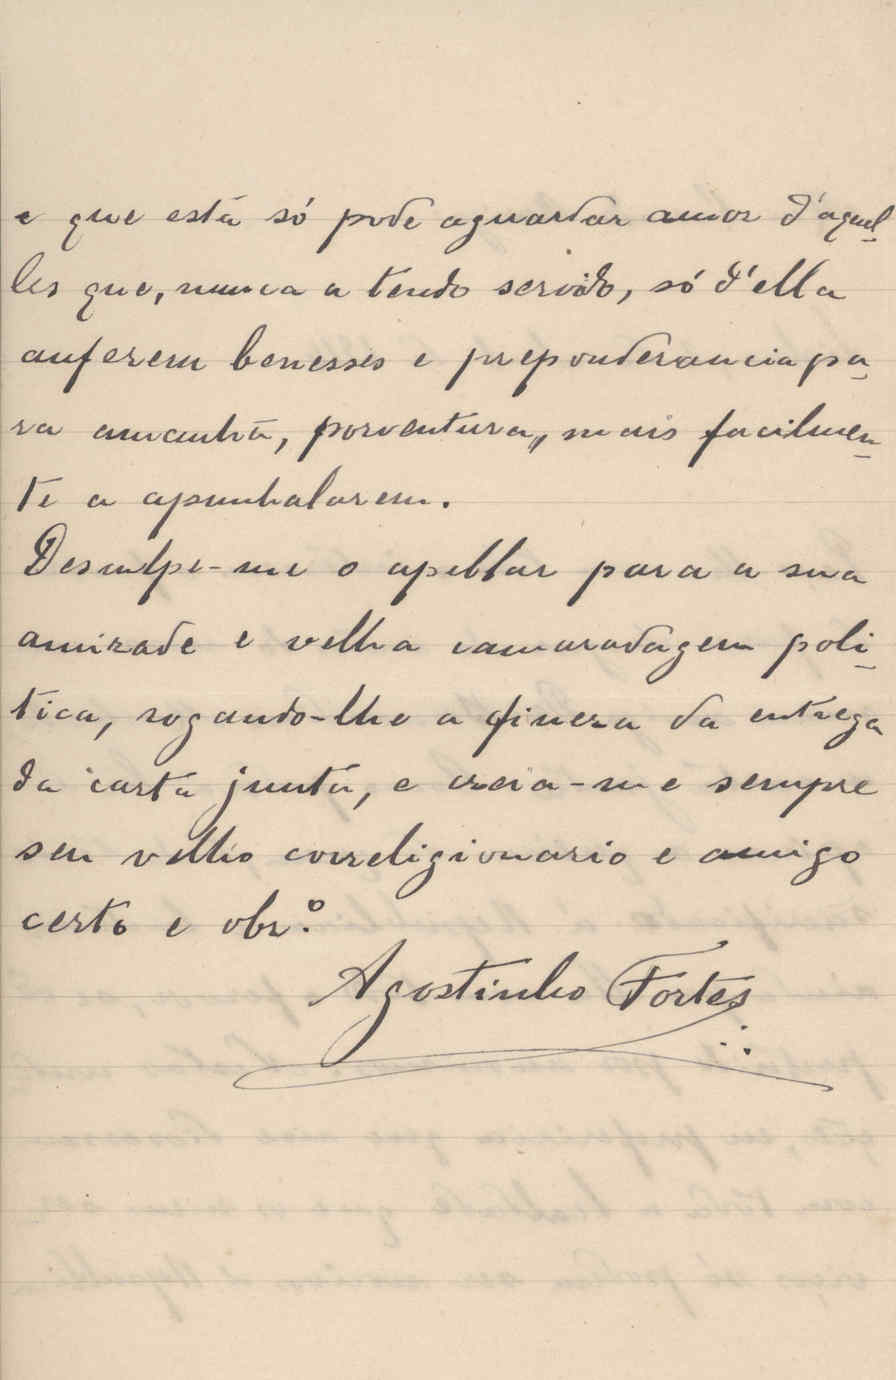 e que esta só pode aguardar amor d'aquel-
les que, nunca a tendo servido, só d'ella
auferem benesses e preponderancia pa-
ra amanhã, porventura, mais facilmen-
te a apunhalarem.
Desculpe-me o apellar para a sua
amizade e velha camaradagem poli-
tica, rogando-lhe a fineza da entrega
da carta junta, e creia-me sempre
seu velho correligionario e amigo
certo e obr.º
Agostinho Fortes